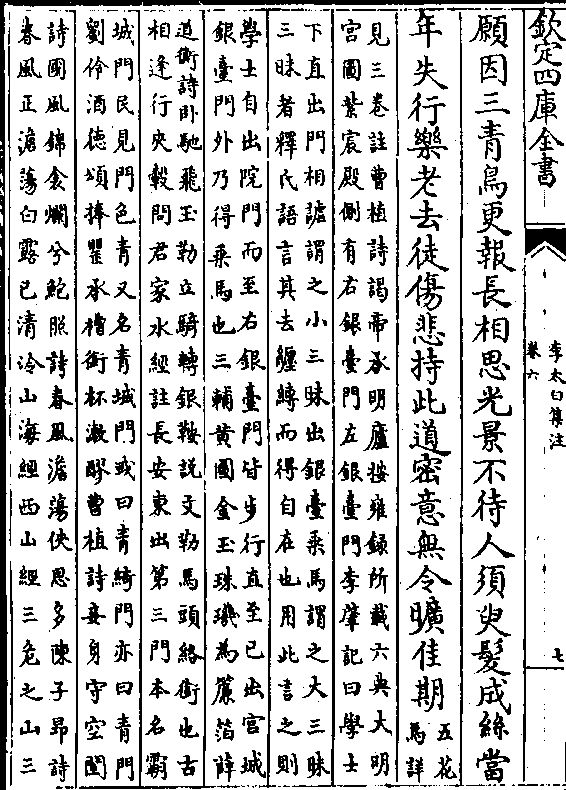 欽定四庫全書
李太白集注
卷六
七
願因三青鳥更報長相思光景不待人須臾髮成絲當
年失行樂老去徒傷悲持此道密意無令曠佳期
五花
馬詳
見三卷註曹植詩謁帝承明廬按雍録所載六典大明
宮圖紫宸殿側有右銀臺門左銀臺門李肇記曰學士
下直出門相謔謂之小三昧出銀臺乘馬謂之大三昧
三昧者釋氏語言其去纏縛而得自在也用此言之則
學士自出院門而至右銀臺門皆步行直至已出宮城
銀臺門外乃得乘馬也三輔黃圖金玉珠璣為簾箔薛
道衡詩卧馳飛玉勒立騎轉銀鞍説文勒馬頭絡銜也古
相逢行夾轂問君家水經註長安東出第三門本名霸
城門民見門色青又名青城門或曰青綺門亦曰青門
劉伶酒德頌捧罌承槽銜杯漱醪曹植詩妾身守空閨
詩國風錦衾爛兮鮑照詩春風澹蕩俠思多陳子昂詩
春風正澹蕩白露已清泠山海經西山經三危之山三